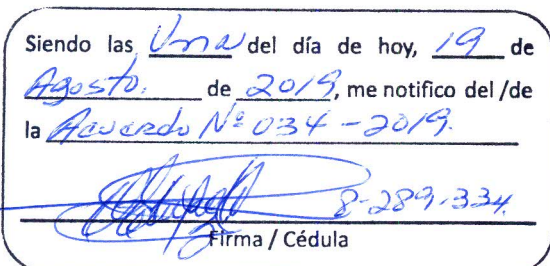 Siendo las Una del día de hoy, 19 de
Agosto. de 2019, me notifico del /de
la Acuerdo Nº 034-2019.
8-289-334.
Firma / Cédula